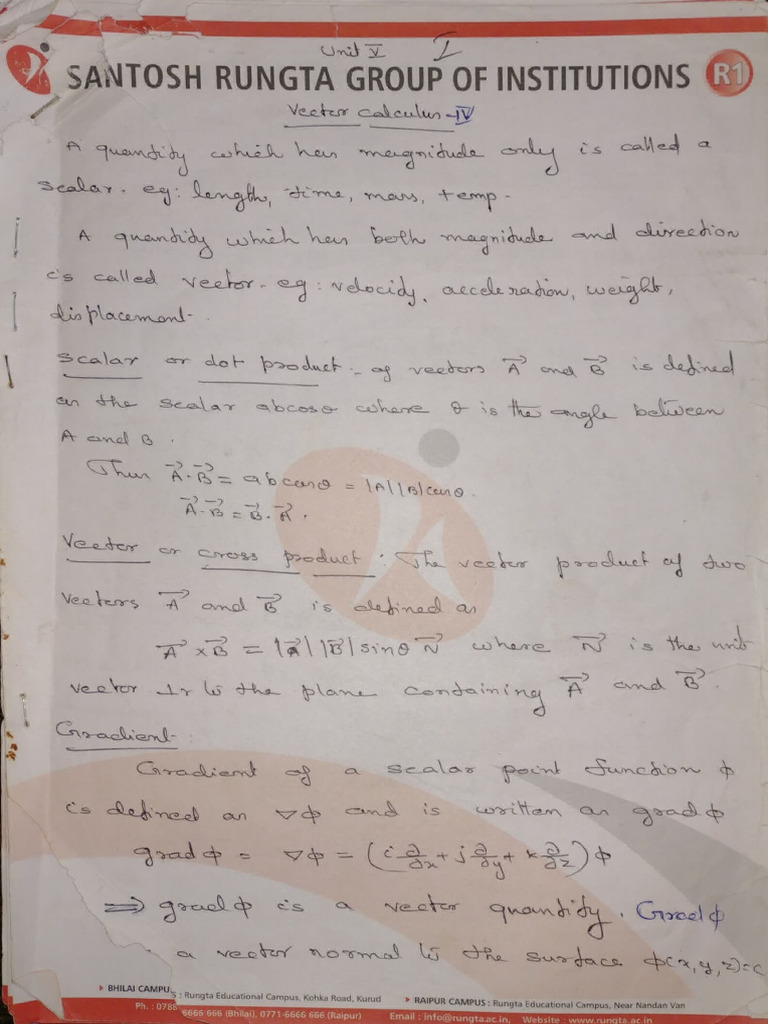 Unit V I
SANTOSH RUNGTA GROUP OF INSTITUTIONS R1
Vector calculus - IV
A quantity which has magnitude only is called a
scalar. eg: length, time, mass, temp.
A quantity which has both magnitude and direction
is called vector. eg: velocity, acceleration, weight,
displacement.
Scalar or dot product :- of vectors A⃗ and B⃗ is defined
as the scalar abcosθ where θ is the angle between
A and B.
Thus A⃗·B⃗ = abcosθ = |A||B|cosθ.
A⃗·B⃗ = B⃗·A⃗.
Vector or cross product : The vector product of two
vectors A⃗ and B⃗ is defined as
A⃗ × B⃗ = |a⃗||B⃗|sinθ N⃗ where N⃗ is the unit
vector ⊥r to the plane containing A⃗ and B⃗.
Gradient
Gradient of a scalar point function ϕ
is defined as ∇ϕ and is written as gradϕ
gradϕ = ∇ϕ = (i ∂/∂x + j ∂/∂y + k ∂/∂z)ϕ
⇒ gradϕ is a vector quantity. Gradϕ
a vector normal to the surface ϕ(x,y,z)=c
BHILAI CAMPUS : Rungta Educational Campus, Kohka Road, Kurud
RAIPUR CAMPUS : Rungta Educational Campus, Near Nandan Van
Ph. : 0788 6666 666 (Bhilai), 0771-6666 666 (Raipur) Email : info@rungta.ac.in, Website : www.rungta.ac.in